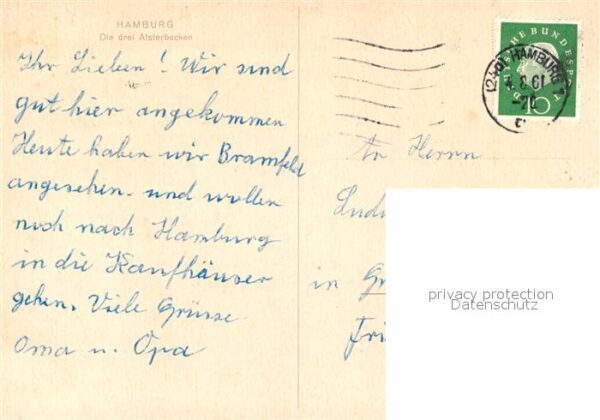 HAMBURG
Die drei Alsterbecken
Ihr Lieben! Wir sind
gut hier angekommen
Heute haben wir Bramfeld
angesehen. und wollen
noch nach Hamburg
in die Kaufhäuser
gehen. Viele Grüsse
Oma u. Opa
DEUTSCHE BUNDESPOST
10
(24a) HAMBURG 1
4.8.61
An Herrn
Ludw
in Gr
Fri
privacy protection
Datenschutz